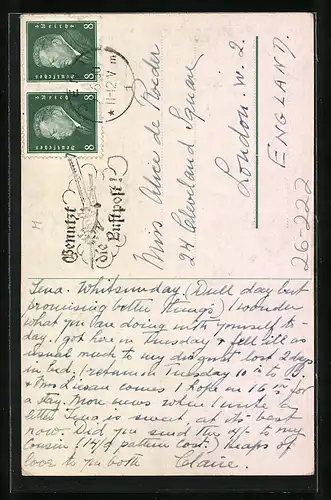 Deutsches Reich 8
Deutsches Reich 8
11-12 V m
Benutzt
die
Luftpost!
Miss Alice de Roeder
24 Cleveland Square
London. W. 2.
ENGLAND.
26-222
Jena. Whitsunday. (Dull day but
promising better things) I wonder
what you are doing with yourself to-
day. I got here on Thursday & fell ill as
usual much to my disgust lost 2 days
in bed, (return on Tuesday 10th to
& Mrs comes I hope on 16th for
a stay. More news when I write by
letter Jena is sweet at its best
now. Did you send the to my
cousin (1/9 pattern cost.) Heaps of
love to you both Claire.